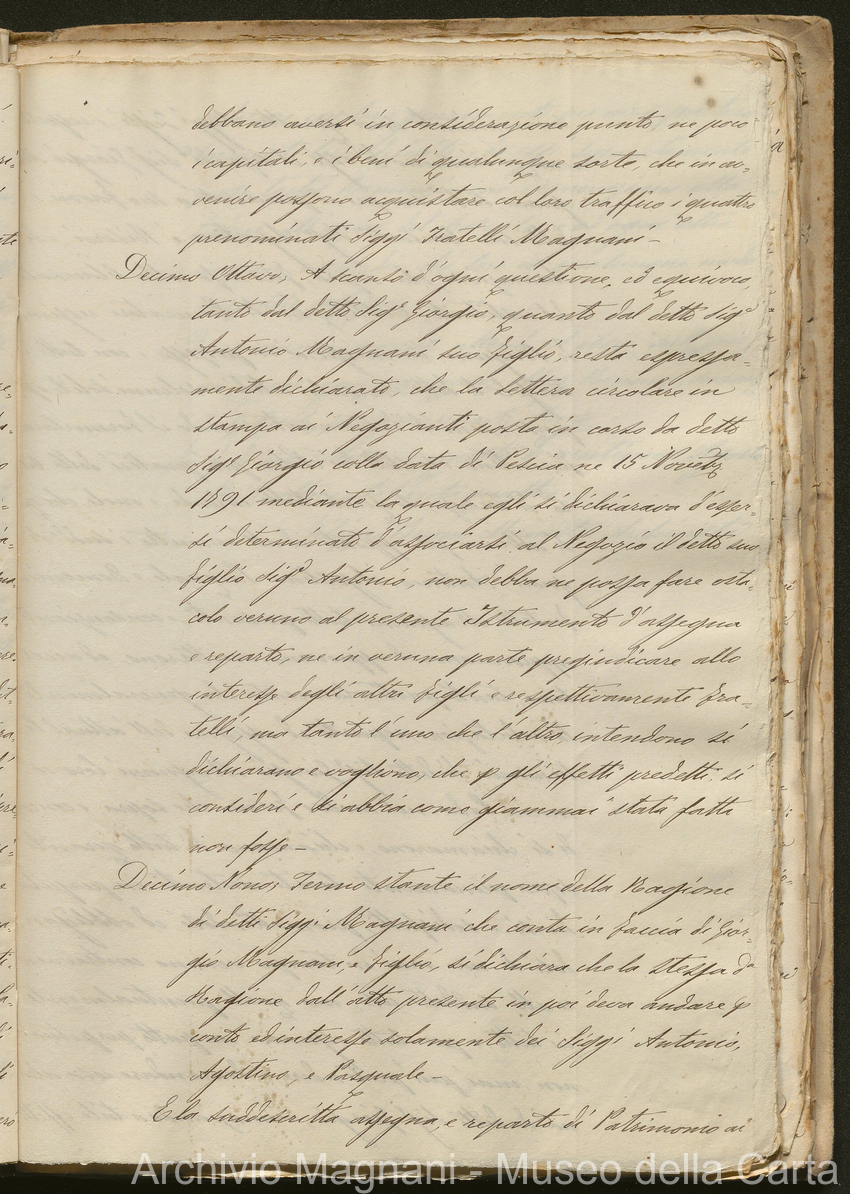 debbano aversi in considerazione punto, ne poco
i capitali, e i beni di qualunque sorte, che in av-
venire possono acquistare col loro traffico i quattro
prenominati Sigg.i Fratelli Magnani -
Decimo Ottavo, A scanso d'ogni questione, ed equivoco,
tanto dal detto Sig.e Giorgio, quanto dal detto Sig.e
Antonio Magnani suo figlio, resta espressa-
mente dichiarato, che la lettera circolare in
stampa ai Negozianti posta in corso da detto
Sig.e Giorgio colla data di Pescia ne 15 Novebr
1791 mediante la quale egli si dichiarava d'esser-
si determinato d'associarsi al Negozio il detto suo
figlio Sig.e Antonio, non debba ne possa fare osta-
colo veruno al presente Istrumento d'assegna
e reparto, ne in veruna parte pregiudicare allo
interesse degli altri figli e respettivamente fra-
telli, ma tanto l'uno che l'altro, intendono si
dichiarano e vogliono, che p gli effetti predetti, si
consideri e si abbia come giammai stata fatta
non fosse -
Decimo Nono, Fermo stante il nome della Ragione
di detti Sigg.i Magnani che conta in faccia di Gior-
gio Magnani, e figlio, si dichiara che la stessa da
Ragione dall'atto presente in poi deva andare p
conto ed interesse solamente dei Sigg.i Antonio,
Agostino, e Pasquale -
E la suddescritta assegna, e reparto di Patrimonio ai
Archivio Magnani - Museo della Carta